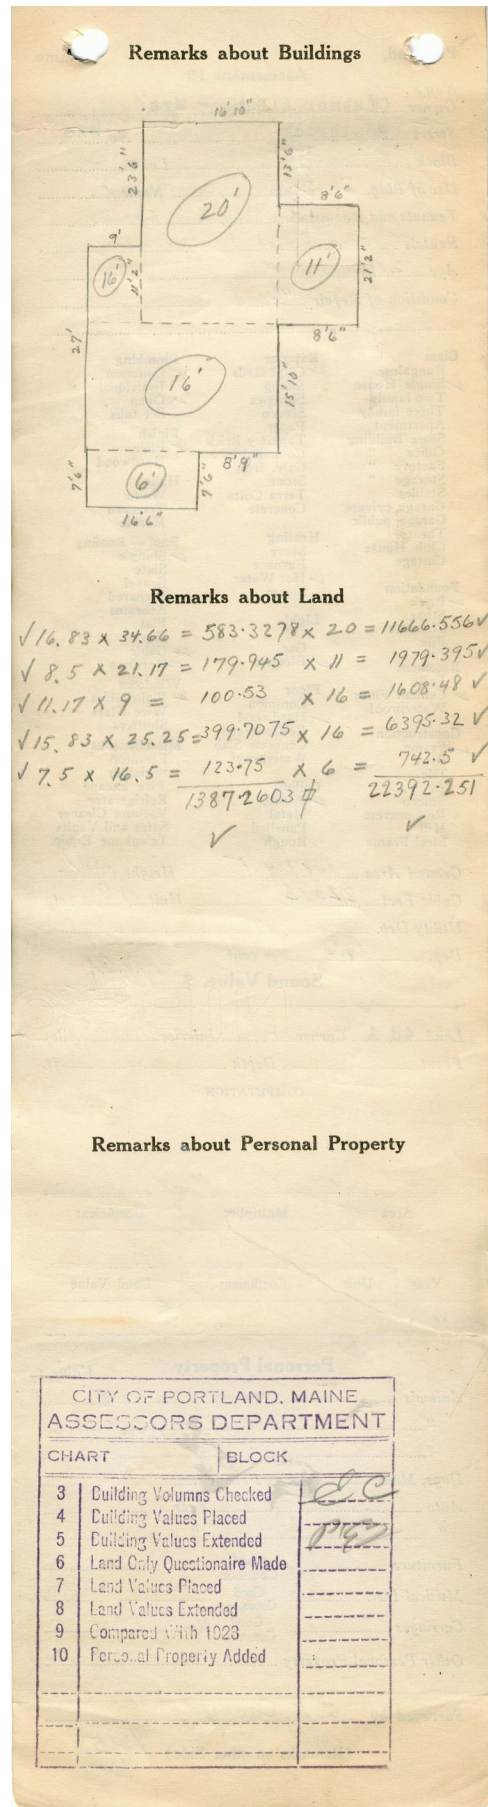 Remarks about Buildings
16'10"
23'6"
13'6"
20'
8'6"
9'
16'
11'2"
11'
21'2"
8'6"
27'
16'
15'10"
8'9"
7'6"
6'
7'6"
16'6"
Remarks about Land
√ 16.83 x 34.66 = 583.3278 x 20 = 11666.556 √
√ 8.5 x 21.17 = 179.945 x 11 = 1979.395 √
√ 11.17 x 9 = 100.53 x 16 = 1608.48 √
√ 15.83 x 25.25 = 399.7075 x 16 = 6395.32 √
√ 7.5 x 16.5 = 123.75 x 6 = 742.5 √
1387.2603 ⌽ 22392.251
√ √
Remarks about Personal Property
CITY OF PORTLAND, MAINE
ASSESSORS DEPARTMENT
CHART BLOCK
3 Building Volumns Checked
4 Building Values Placed
5 Building Values Extended
6 Land Only Questionaire Made
7 Land Values Placed
8 Land Values Extended
9 Compared With 1923
10 Personal Property Added